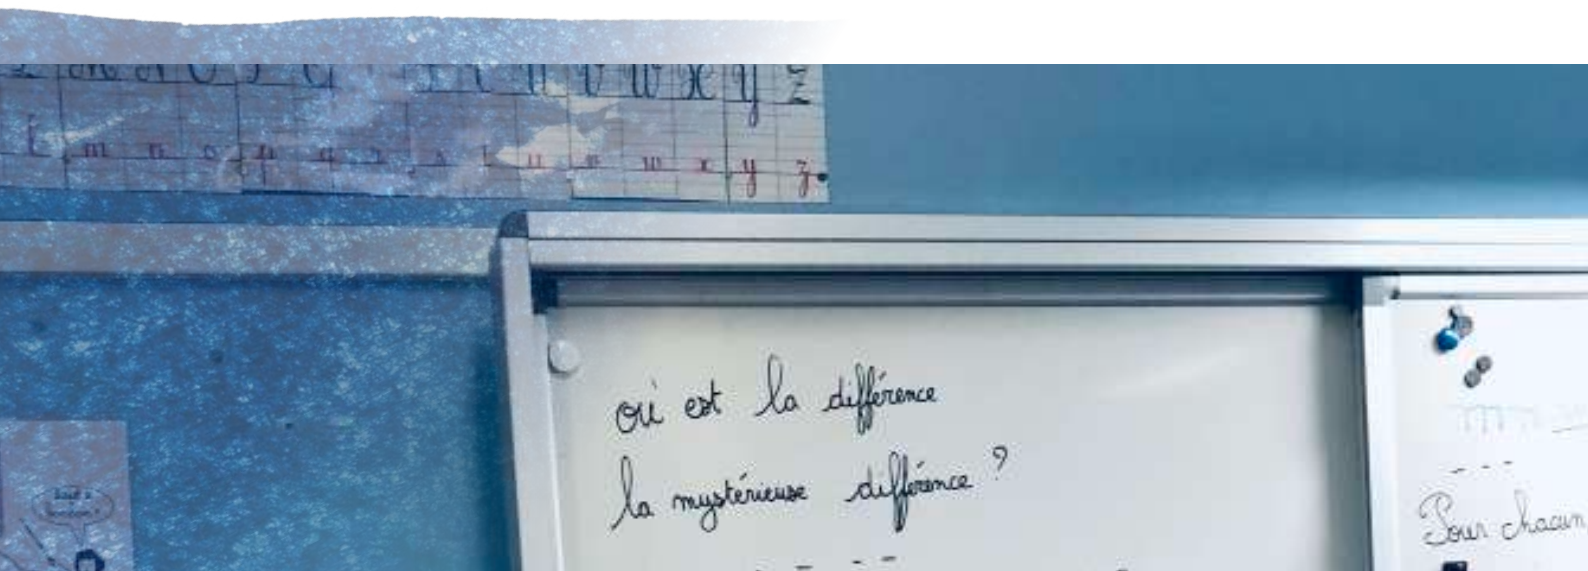 m n o p q r s t u v w x y z
où est la différence
la mystérieuse différence ?
Pour chacun